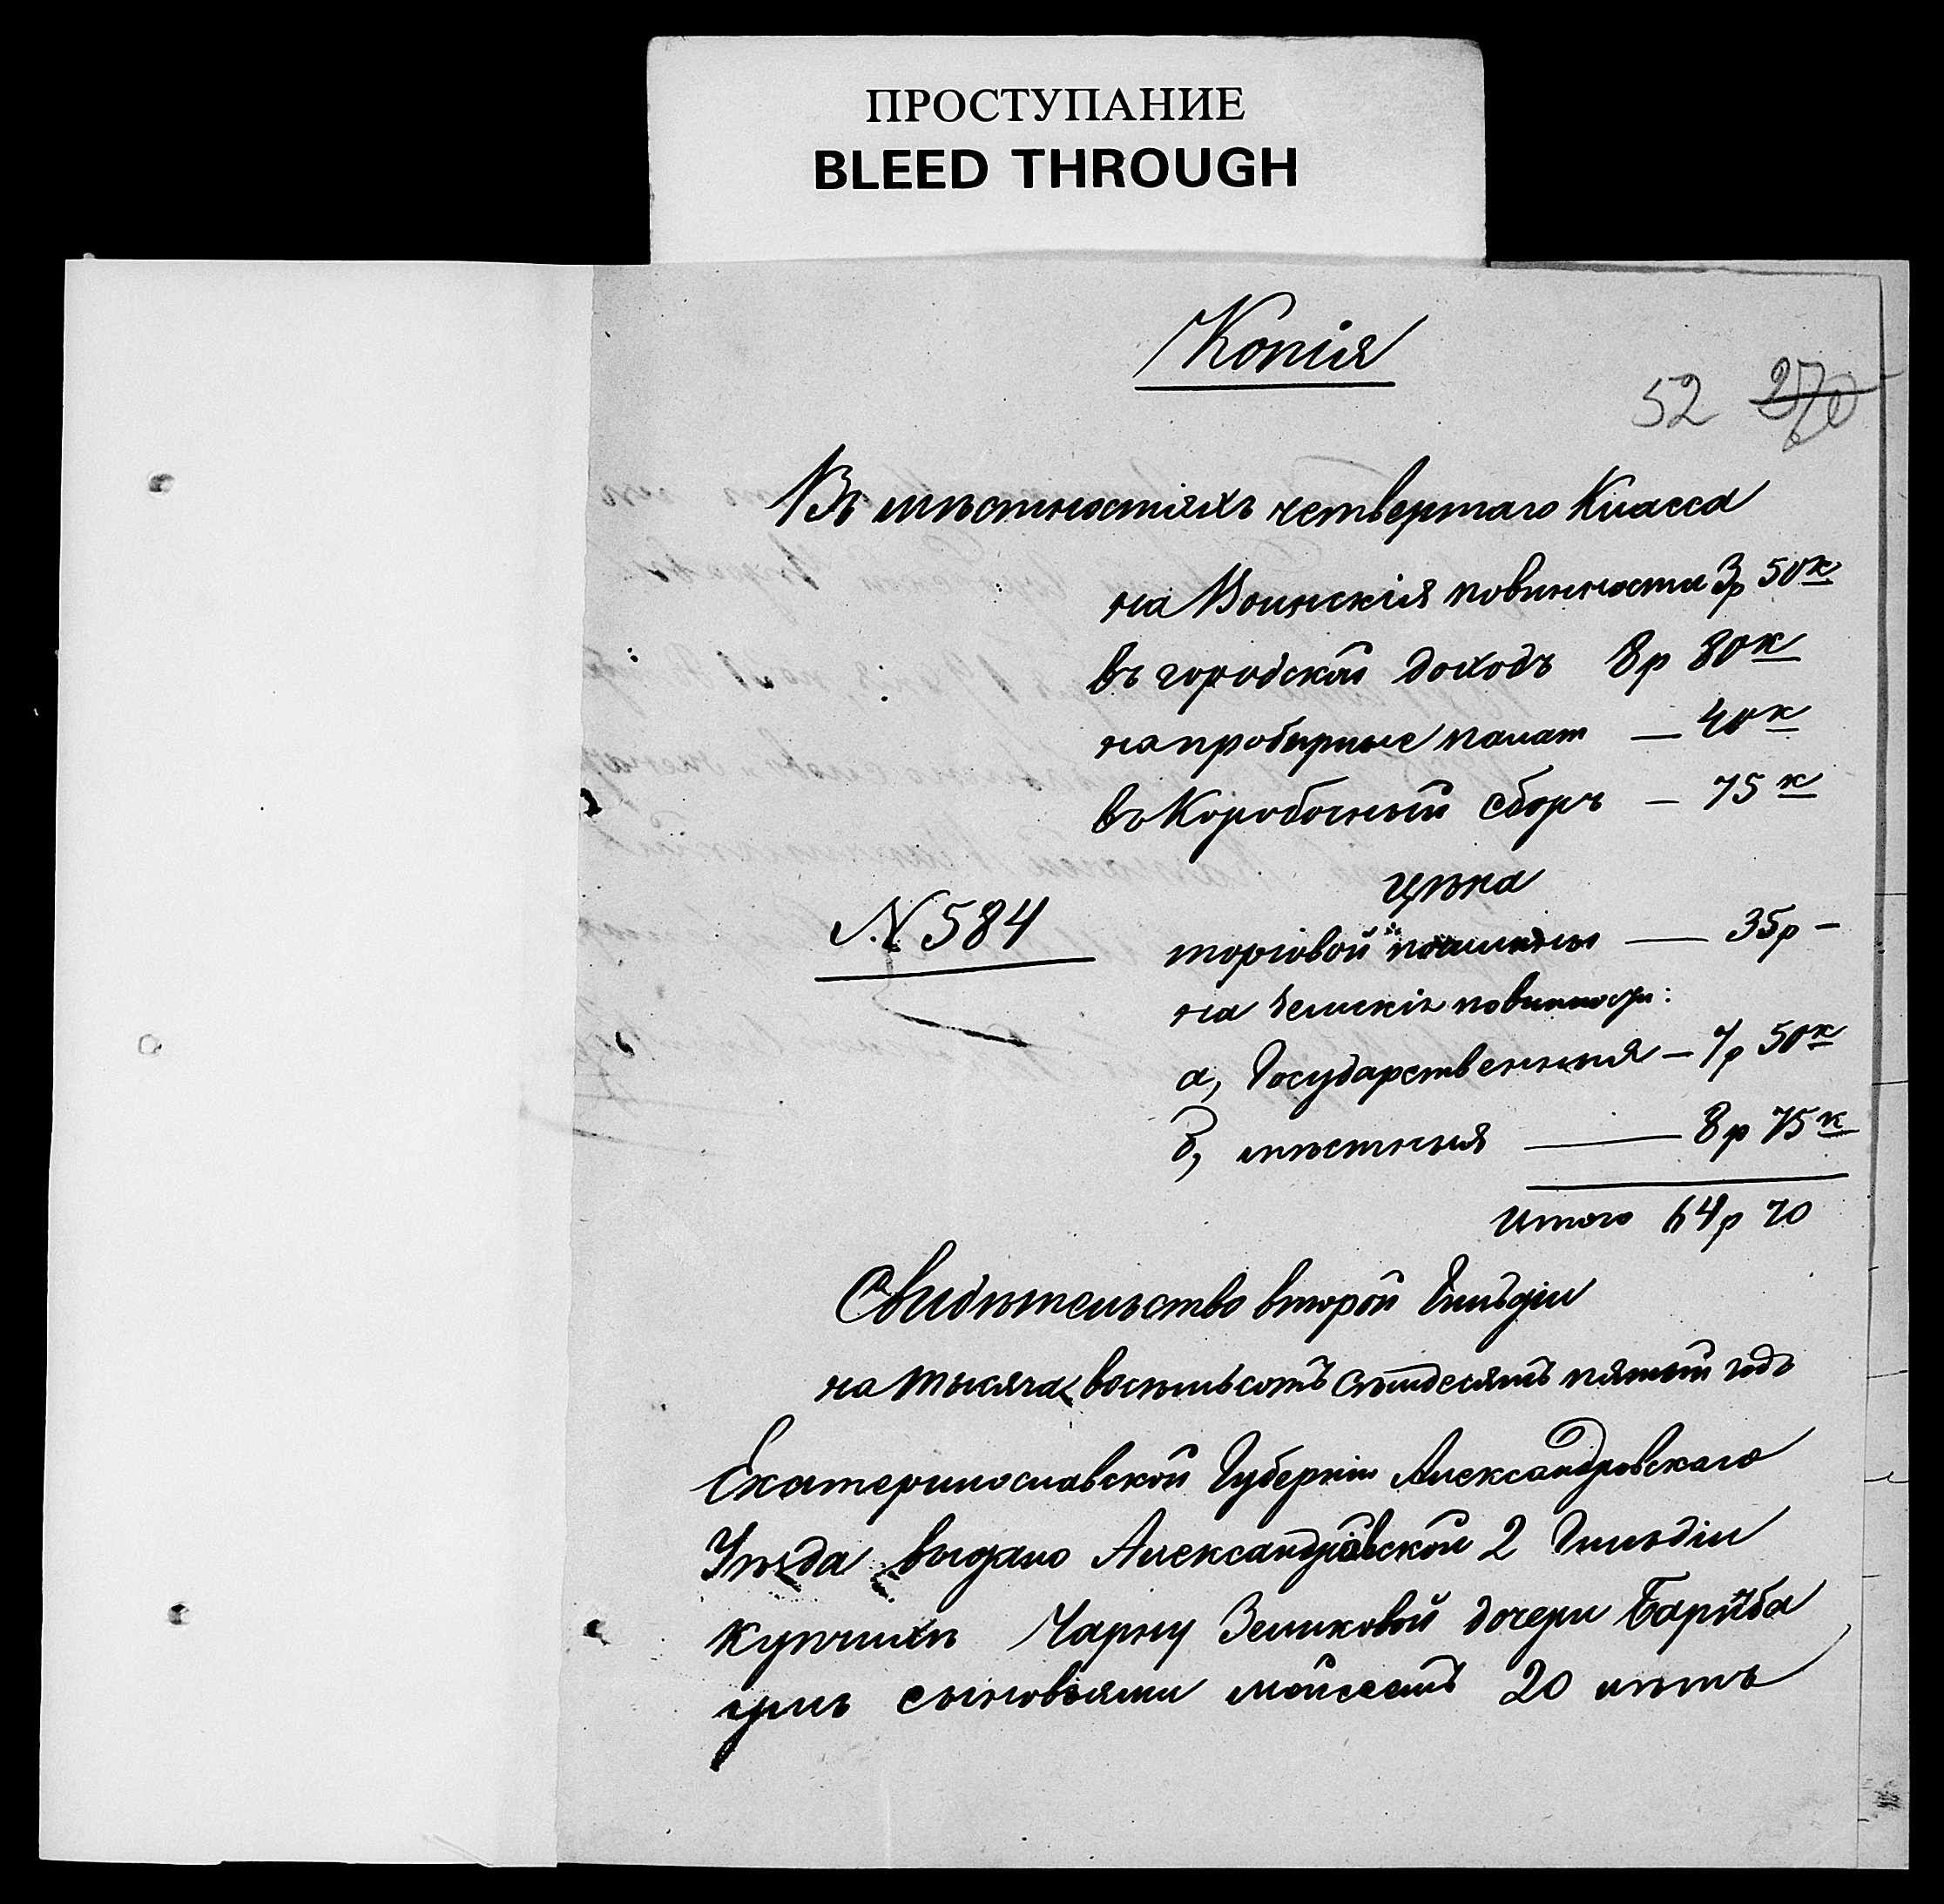 ПРОСТУПАНИЕ
BLEED THROUGH
Копія
52 270
Въ мѣстностяхъ четвертаго Класса
на Воинскія повинности 3р 50к
въ городской доходъ 8р 80к
на пробирные палат — 40к
въ Коробочный сборъ — 75к
Цѣна
N 584
торговой пошлины — 35р –
на Земскія повинности:
а, Государственныя — 7р 50к
б, мѣстныя — 8р 75к
Итого 64р 70
Свидѣтельство второй Гильдіи
на тысяча восемьсотъ семдесятъ пятый годъ
Екатеринославской Губерніи Александровскаго
Уѣзда выдано Александровской 2 Гильдіи
купчихѣ Чарну Зеликовой дочери
сыновьями Мойсеемъ 20 лѣтъ